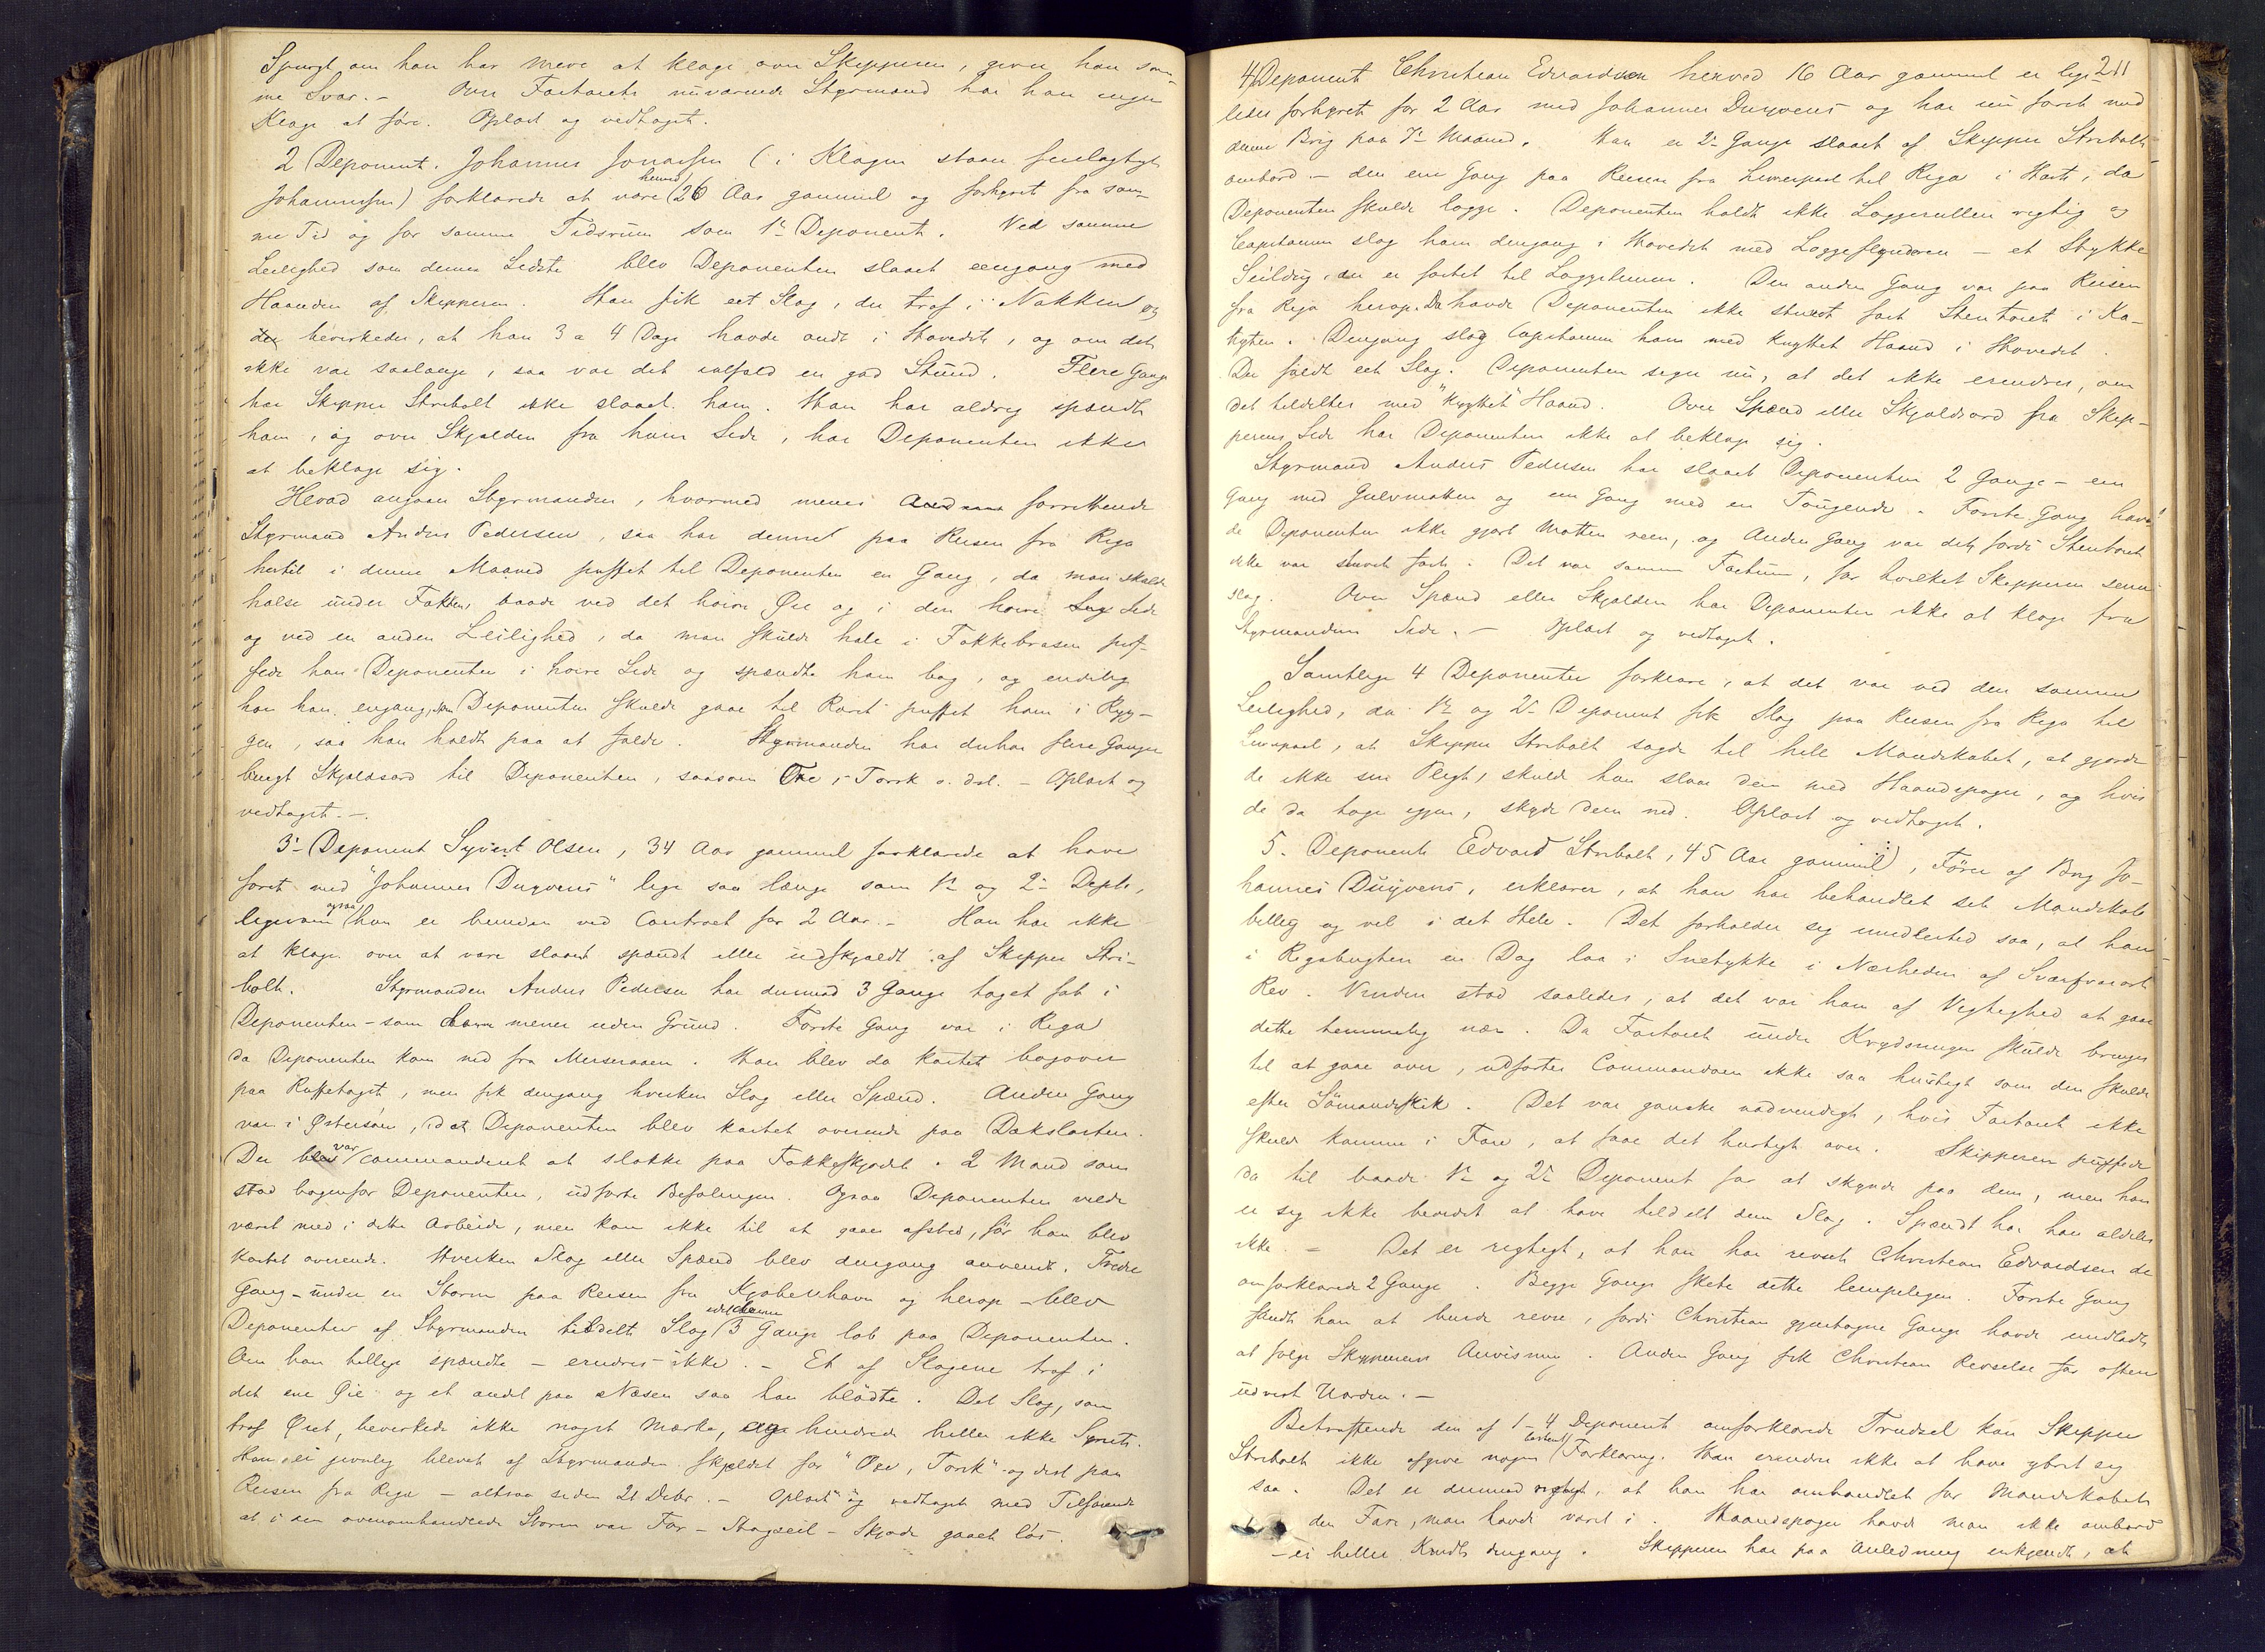 Spurgt om han har mere at klage over Skipperen, giver han sam-
me Svar. – Over Fartøiets nuværende Styrmand har han ingen
Klage at føre. Oplæst og vedtaget.
2 Deponent. Johannes Jonassen (i Klagen staaer feilagtigt
Johannessen) forklarede at være henved 26 Aar gammel og forhyret fra sam-
me Tid og for samme Tidsrum som 1ste Deponent. Ved samme
Leilighed som denne Sidste blev Deponenten slaaet eengang med
Haanden af Skipperen. Han fik eet Slag, der traf i Nakken og
der bevirkede, at han 3 a 4 Dage havde ondt i Hovedet, og om det
ikke var saalænge, saa var det ialfald en god Stund. Flere Gange
har Skipper Stribolt ikke slaaet ham. Han har aldrig spændt
ham, og over Skjælden fra hans Side, har Deponenten ikke
at beklage sig.
Hvad angaaer Styrmanden, hvormed menes forrettende
Styrmand Anders Pedersen, saa har denne paa Reisen fra Riga
hertil i denne Maaned puffet til Deponenten en Gang, da man skulde
halse under Fokken, baade ved det høire Øre og i den høire Side
og ved en anden Leilighed, da man skulde hale i Fokkebrasen puf-
fede han Deponenten i høire Side og spændte ham bag, og endelig
har han engang, som Deponenten skulde gaae til Roret puffet ham i Ryg-
gen, saa han holdt paa at falde. Styrmanden har derhos flere Gange
brugt Skjældsord til Deponenten, saasom Oxe, Torsk o. dsl. – Oplæst og
vedtaget. –
3die Deponent Syvert Olsen, 34 Aar gammel forklarede at have
faret med "Johannes Duyvens" lige saa længe som 1ste og 2den Depts,
ligesom ogsaa han er bunden ved Contract for 2 Aar. – Han har ikke
at klage over at være slaaet spændt eller udskjældt af Skipper Stri-
bolt. Styrmanden Anders Pedersen har dermod 3 Gange taget fat i
Deponenten – som han mener uden Grund. Første Gang var i Riga
da Deponenten kom ned fra Mersraaen. Han blev da kastet bagover
paa Ruffetaget, men fik dengang hverken Slag eller Spænd. Anden Gang
var i Østersøen, idet Deponenten blev kastet overende paa Dækslasten.
Der var commanderet at slække paa Fokkeskjødet. 2 Mand som
stod bagenfor Deponenten, udførte Befalingen. Ogsaa Deponenten vilde
været med i dette Arbeide, men kom ikke til at gaae afsted, før han blev
kastet overende. Hverken Slag eller Spænd blev dengang anvendt. Tredie
Gang – under en Storm paa Reisen fra Kjøbenhavn og herop – blev
Deponenten af Styrmanden tildelt Slag 3 Gange løb paa Deponenten.
Om han tillige spændte – erindres ikke. – Et af Slagene traf i
det ene Øie og et andet paa Næsen saa han blødte. Det Slag, som
traf Øiet, bevirkede ikke noget Mærke, og hindrede heller ikke Synet.
Han er jevnlig blevet af Styrmanden skjældet for "Oxe, Torsk" og dsl paa
Reisen fra Riga – altsaa siden 21 Decbr. – Oplæst og vedtaget med Tilføiende
at i den ovenomhandlede Storm var For-Stagseil-Skjøde gaaet løs.
211
4de Deponent Christian Edvardsen henved 16 Aar gammel er lige-
ledes forhyret for 2 Aar med Johannes Duyvens og har nu faret med
denne Brig paa 7de Maaned. Han er 2de Gange slaaet af Skipper Stribolt
ombord – den ene Gang paa Reisen fra Liverpool til Riga i Høst, da
Deponenten skulde logge. Deponenten holdt ikke Loggerullen rigtig og
Capitainen slog ham dengang i Hovedet med Loggeflynderen – et Stykke
Seildug, der er fæstet til Loggelinen. Den anden Gang var paa Reisen
fra Riga herop. Da havde Deponenten ikke stuet fast Stentøiet i Ka-
hyten. Dengang slog Capitainen ham med knyttet Haand i Hovedet.
Der faldt eet Slag. Deponenten siger nu, at det ikke erindres, om
det tildeltes med "knyttet" Haand. Over Spænd eller Skjældsord fra Skip-
perens Side har Deponenten ikke at beklage sig.
Styrmand Anders Pedersen har slaaet Deponenten 2 Gange – een
Gang med Gulvmatten og een Gang med en Tougende. Første Gang hav-
de Deponenten ikke gjort Matten reen, og Anden Gang var det fordi Stentøiet
ikke var stuet fast. Det var samme Factum, for hvilket Skipperen
slog. Over Spænd eller Skjælden har Deponenten ikke at klage fra
Styrmandens Side. – Oplæst og vedtaget.
Samtlige 4 Deponenter forklare, at det var ved den samme
Leilighed, da 1ste og 2den Deponent fik Slag paa Reisen fra Riga til
Liverpool, at Skipper Stribolt sagde til hele Mandskabet, at gjorde
de ikke sin Pligt, skulde han slaae dem med Haandspager, og hvis
de da toge igjen, skyde dem ned. Oplæst og vedtaget.
5. Deponent Edvard Stribolt, 45 Aar gammel, Fører af Brig Jo-
hannes Duyvens, erklærer, at han har behandlet sit Mandskab
billig og vel i det Hele. Det forholder sig imidlertid saa, at han
i Rigabugten en Dag laa i Snetykke i Nærheden af Svarfvarort
Rev. Vinden stod saaledes, at det var ham af Vigtighed at gaae
dette temmelig nær. Da Fartøiet under Krydsningen skulde bringes
til at gaae over, udførtes Commandoen ikke saa hurtigt som den skulde
efter Sömandsskik. Det var ganske nødvendigt, hvis Fartøiet ikke
skulde komme i Fare, at faae det hurtigt over. Skipperen puffede
da til baade 1ste og 2den Deponent for at skynde paa dem, men han
er sig ikke bevidst at have tildelt dem Slag. Spændt har han aldeles
ikke. – Det er rigtigt, at han har revset Christian Edvardsen de
omforklarede 2 Gange. Begge Gange skete dette lempeligen. Første Gang
fandt han at burde revse, fordi Christian gjentagne Gange havde undladt
at følge Skipperens Anvisning. Anden Gang fik Christian Revselse for oftere
udvist Uorden. –
Betræffende den af 1–4 Deponent omforklarede Trudsel kan Skipper
Stribolt ikke afgive nogen bestemt Forklaring. Han erindrer ikke at have ytret sig
saa. Det er dermod rigtigt, at han har omhandlet for Mandskabet
den Fare, man havde været i. Haandspager havde man ikke ombord
– ei heller Krudt dengang. Skipperen har paa Anledning erkjendt, at